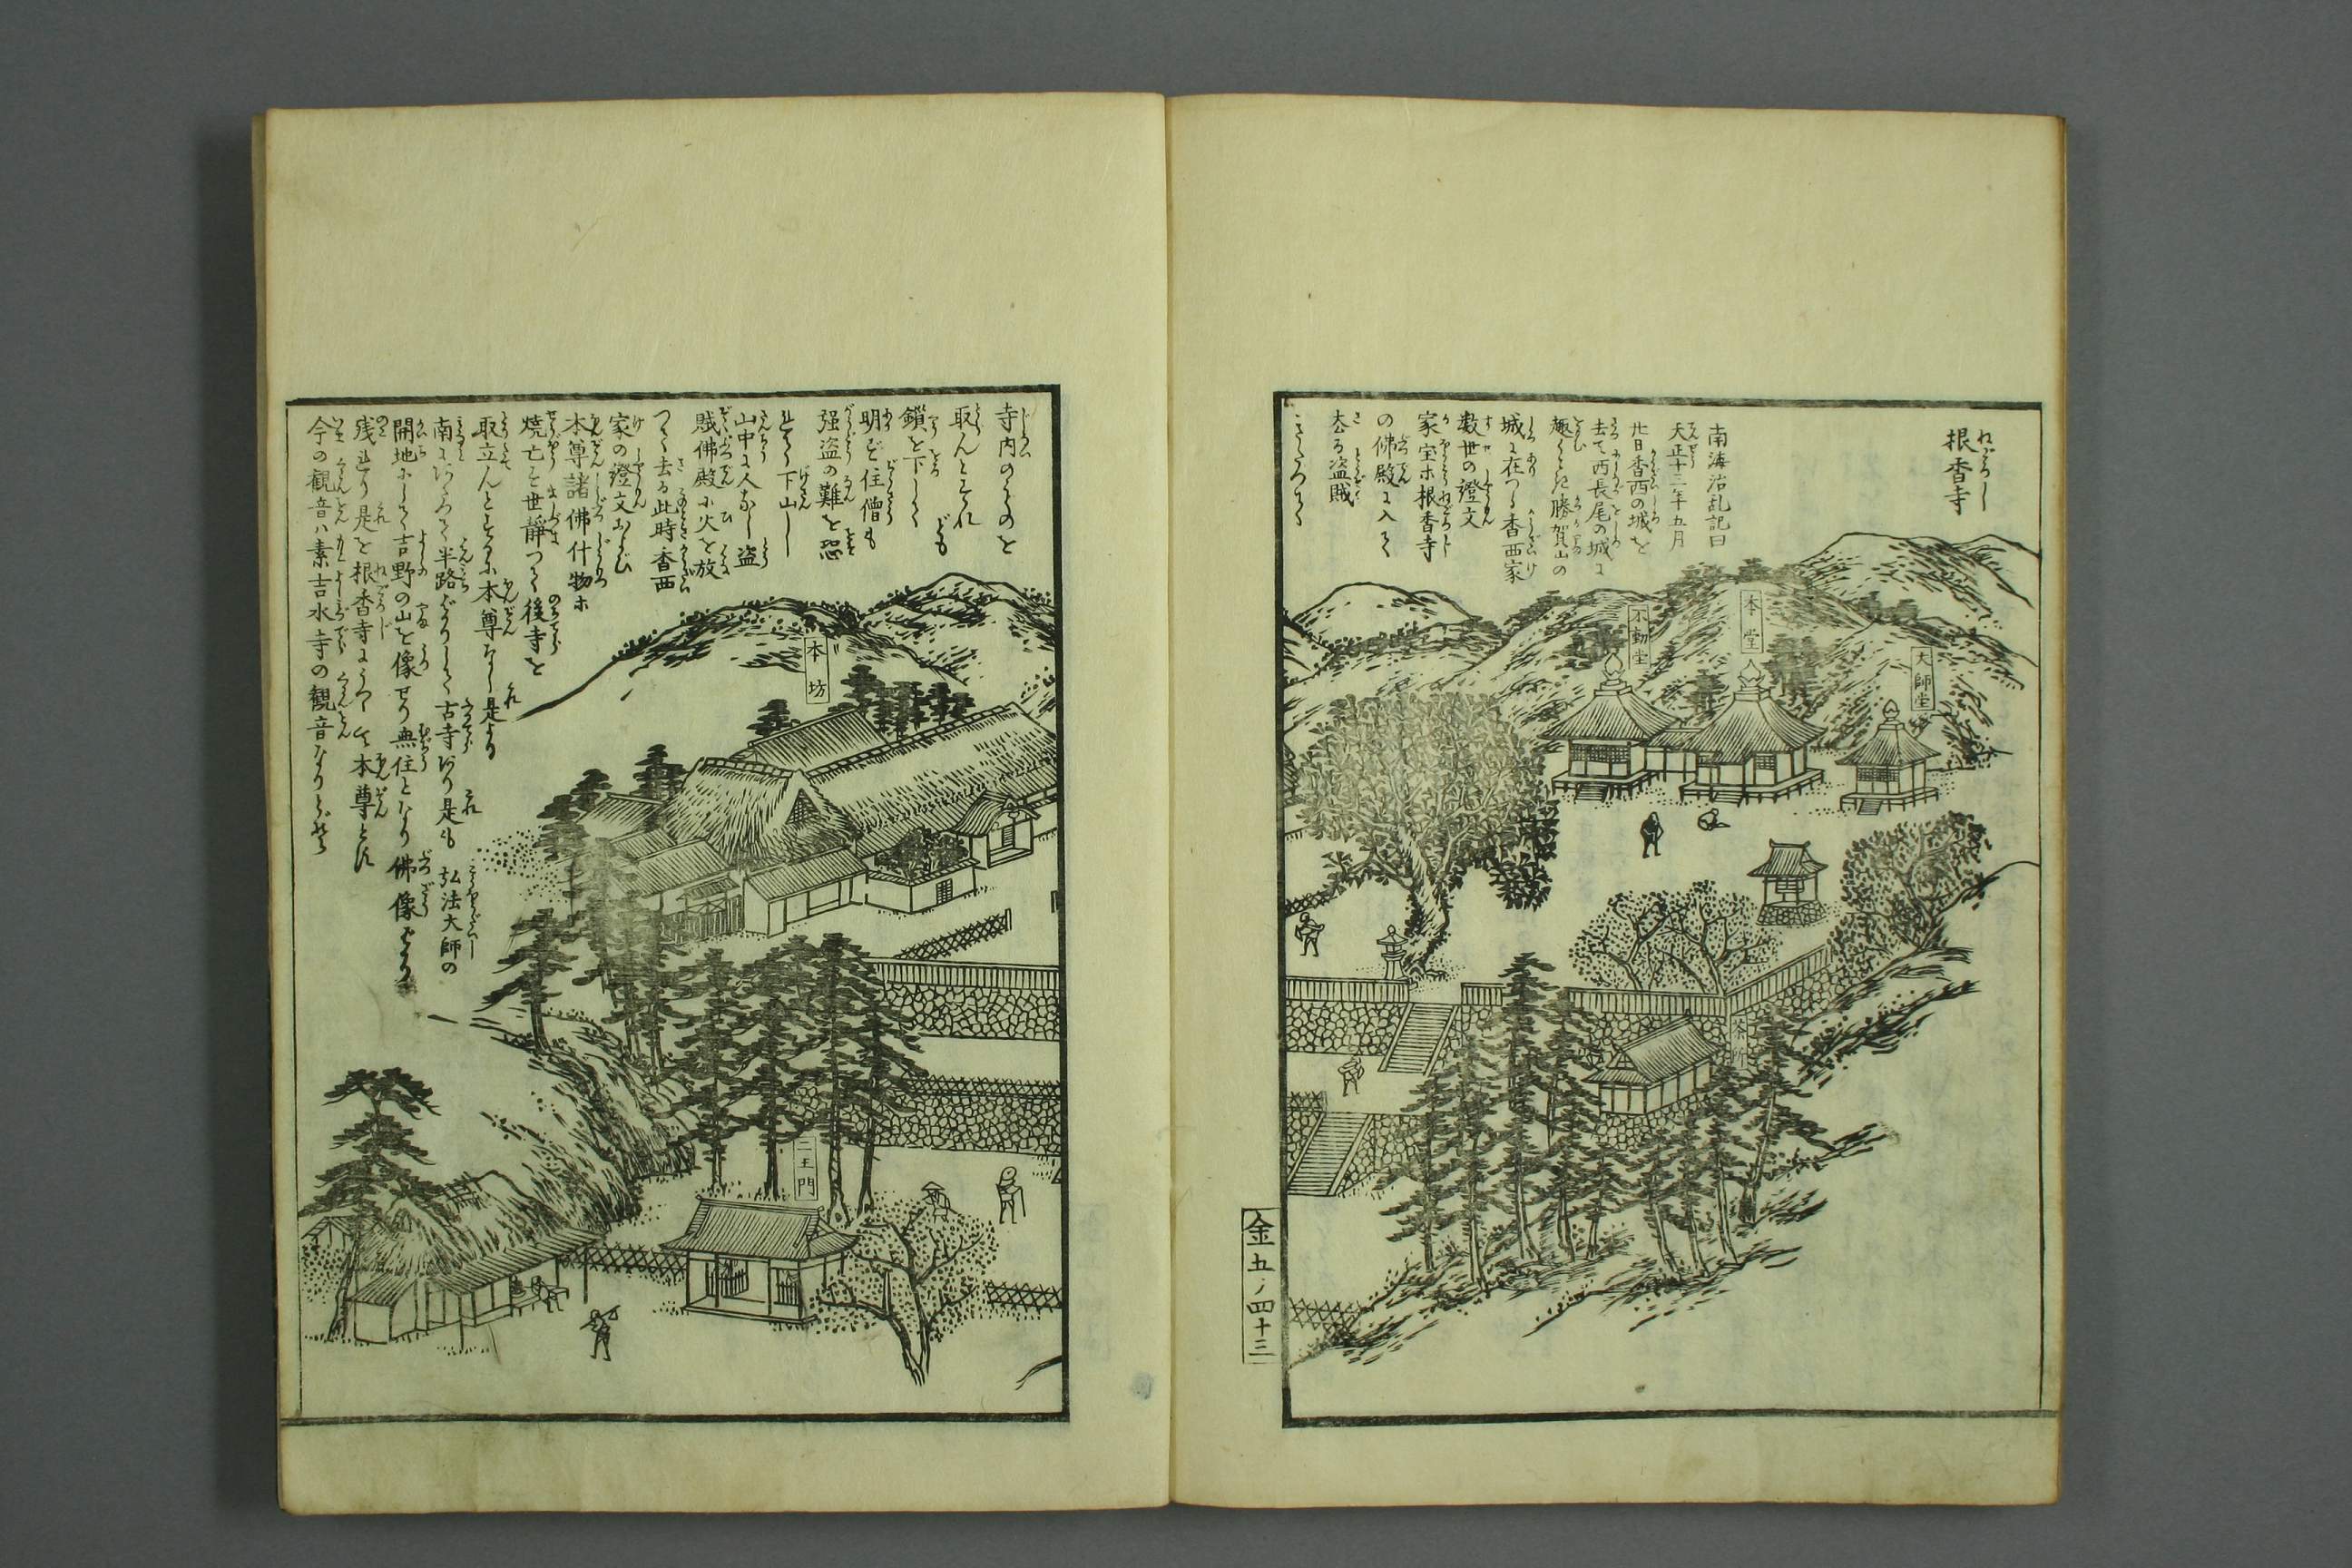 根香寺
ねごろじ
南海治乱記曰
天正十三年五月
廿日香西の城を
去て西長尾の城に
趣くとき勝賀山の
城に在つる香西家
数世の證文
家宝ホ根香寺
の佛殿に入て
去る盗賊
本堂
不動堂
大師堂
茶所
金五ノ四十三
寺内のものを
取んとすれ
鎖を下して
明ず住僧も
强盗の難を恐
下山し
山中に人なし盗
賊佛殿に火を放
つて去る此時香西
家の證文および
本尊諸佛什物ホ
焼亡す世静つて後寺を
取立んとするに本尊なし是より
南にあたりて半路ばかりして古寺あり是も弘法大師の
開地にして吉野の山を像せり無住となり佛像ばかり
残れり是を根香寺にうつして本尊とす
今の観音ハ素吉水寺の観音なりとぞ
本坊
二王門